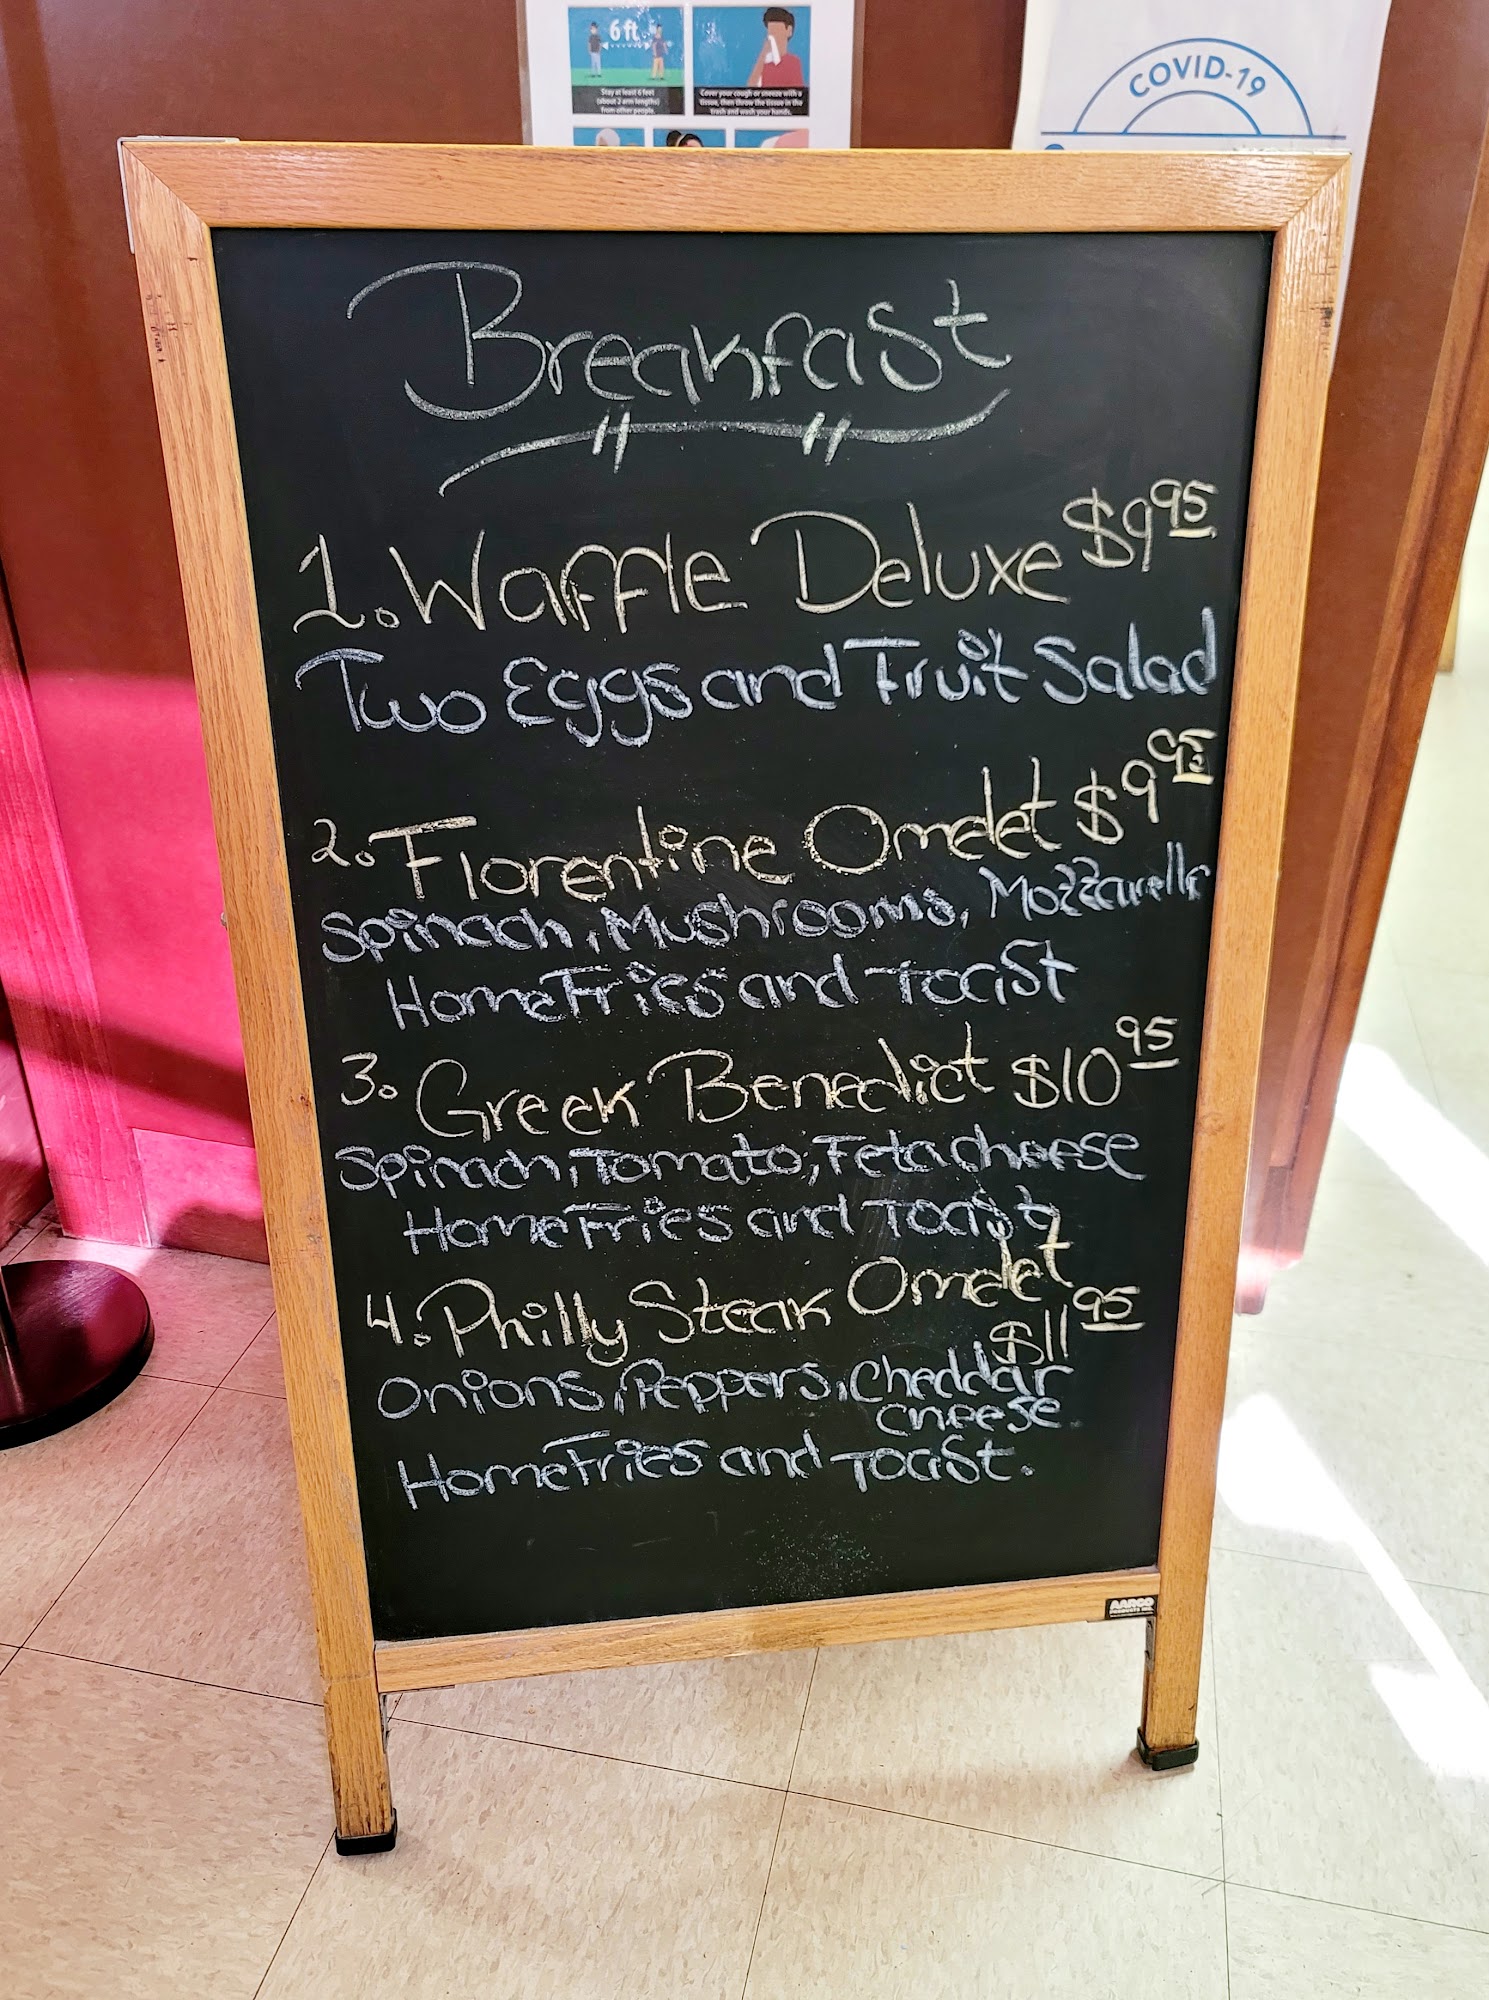 6 ft
Stay at least 6 feet
(about 2 arm lengths)
from other people.
Cover your cough or sneeze with a
tissue, then throw the tissue in the
trash and wash your hands.
COVID-19
Breakfast
1. Waffle Deluxe $9 95
Two Eggs and Fruit Salad
2. Florentine Omelet $9 95
Spinach, Mushrooms, Mozzarella
Home Fries and Toast
3. Greek Benedict $10 95
Spinach, Tomato, Feta cheese
Home Fries and Toast
4. Philly Steak Omelet
$11 95
Onions, Peppers, Cheddar
cheese
Home Fries and Toast.
AARCO
PRODUCTS INC